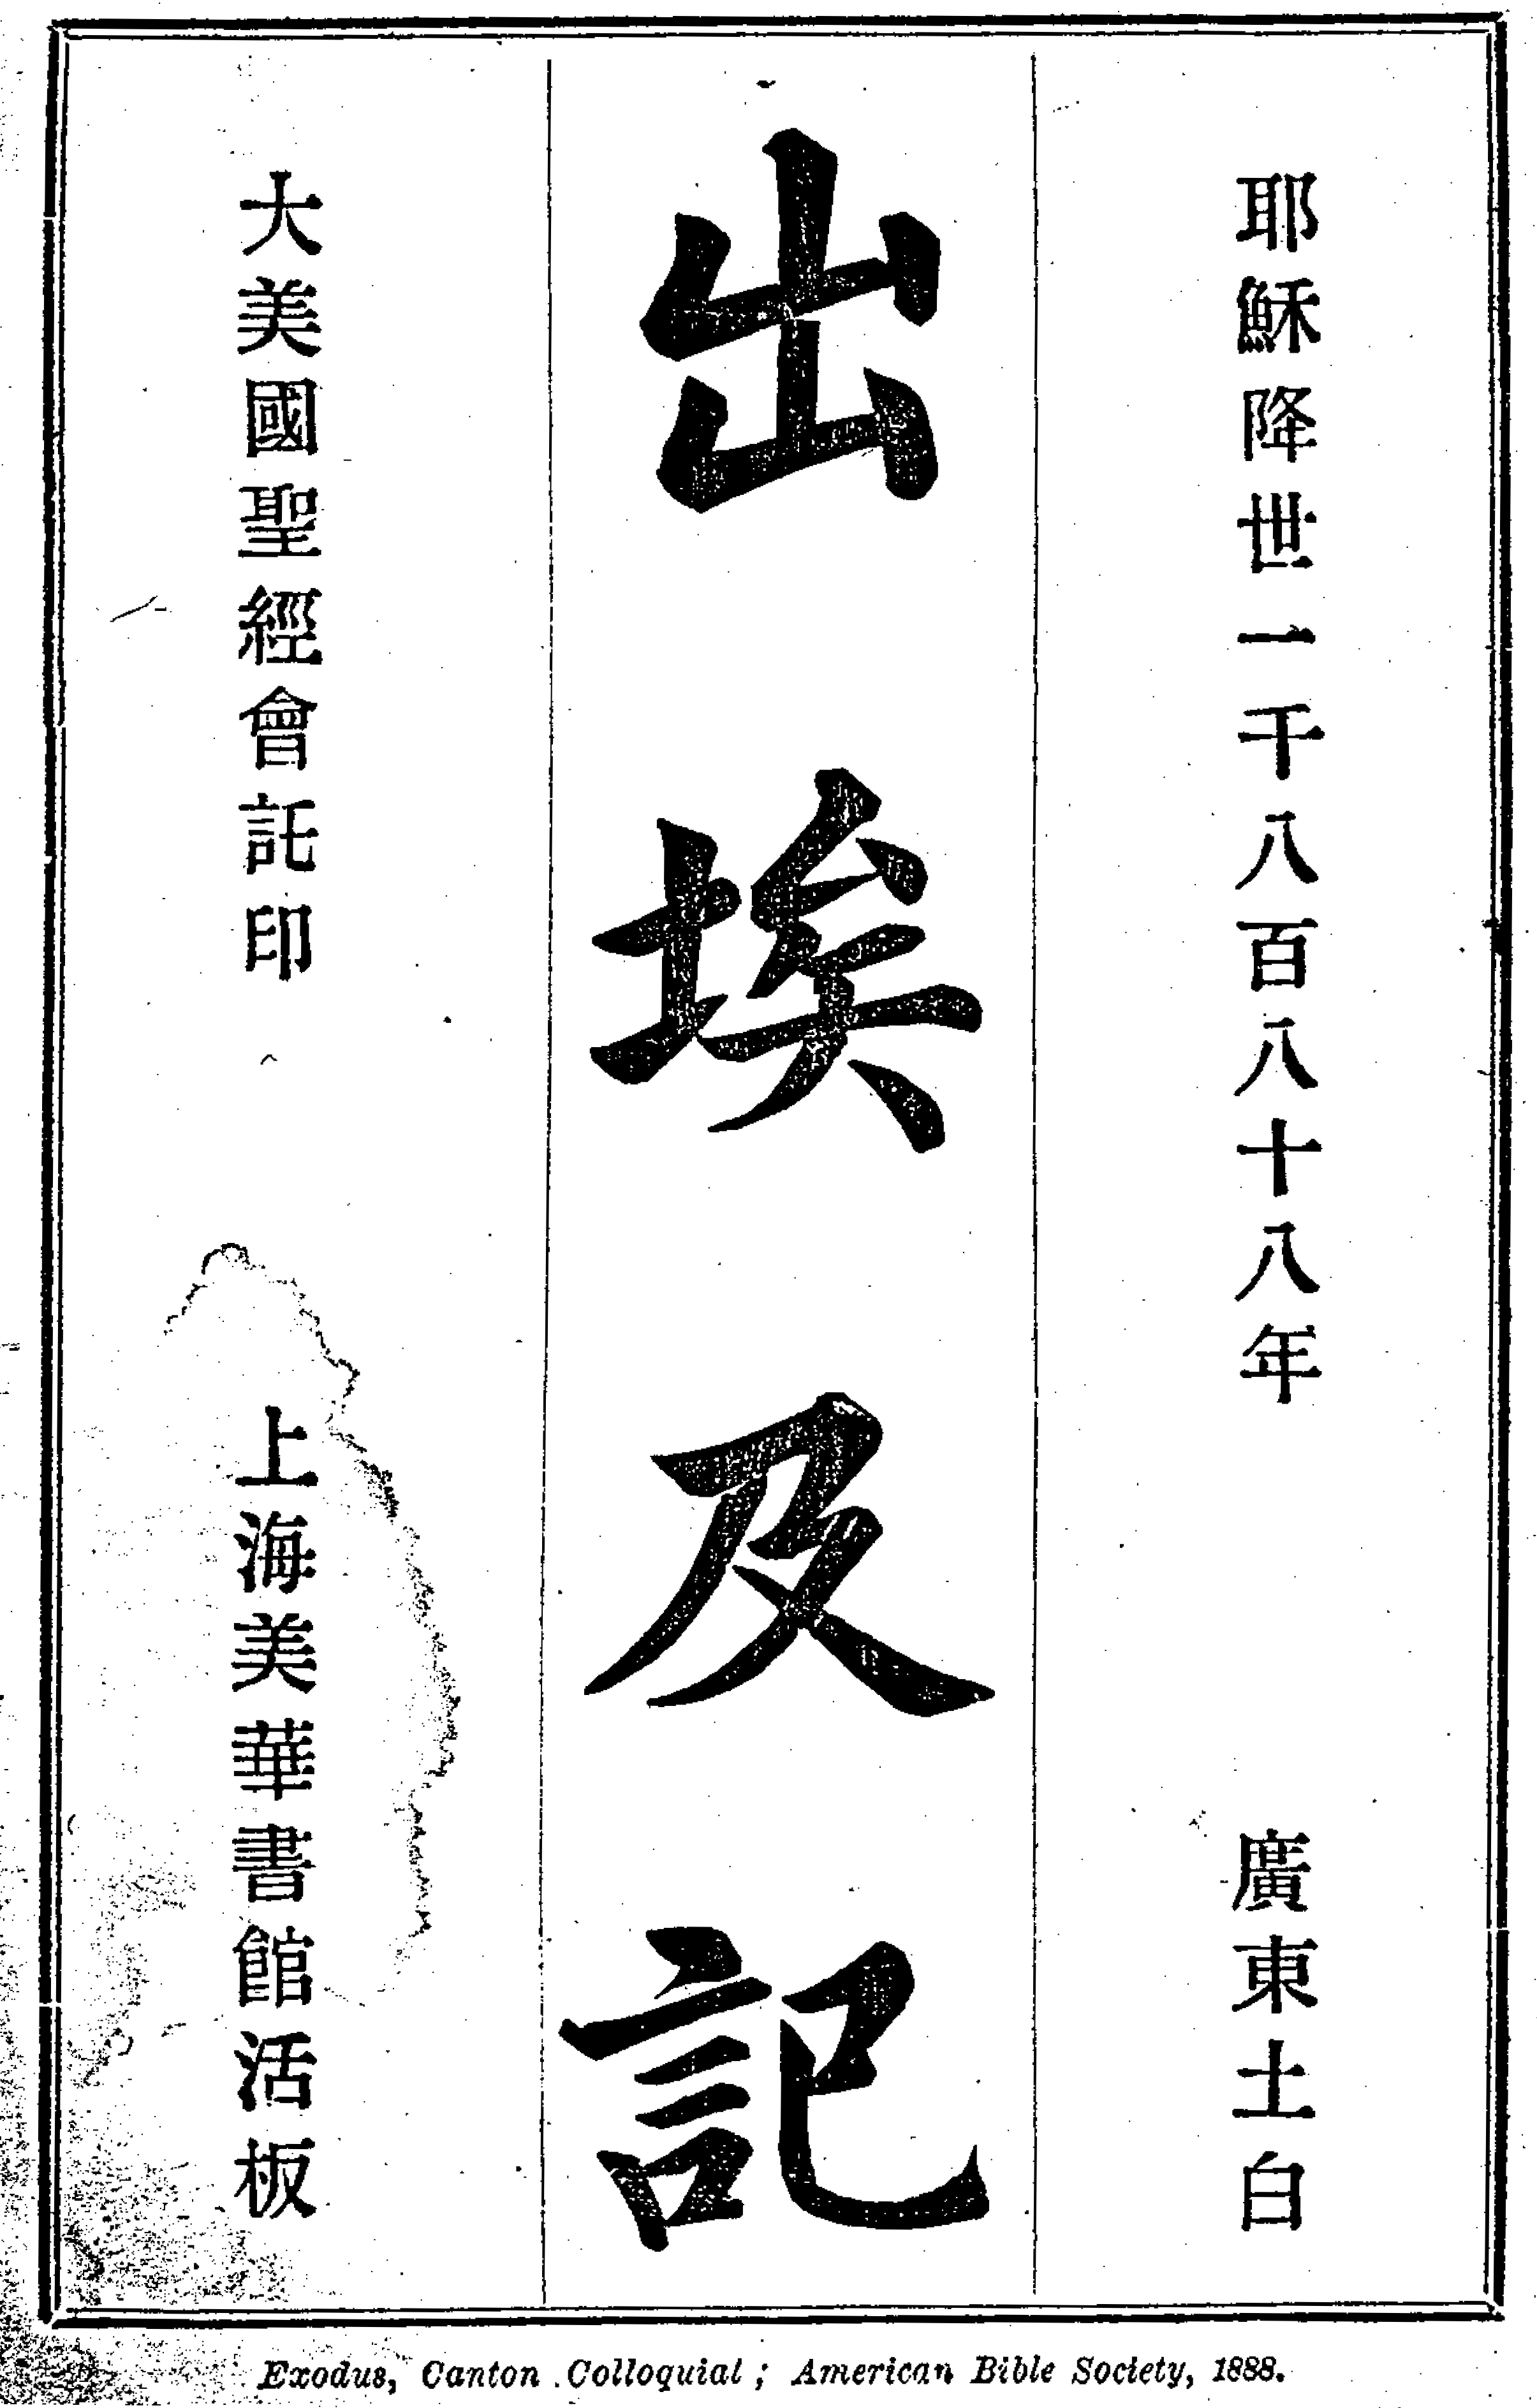 耶穌降世一千八百八十八年
廣東土白
出埃及記
大美國聖經會託印
上海美華書館活板
Exodus, Canton Colloquial; American Bible Society, 1888.